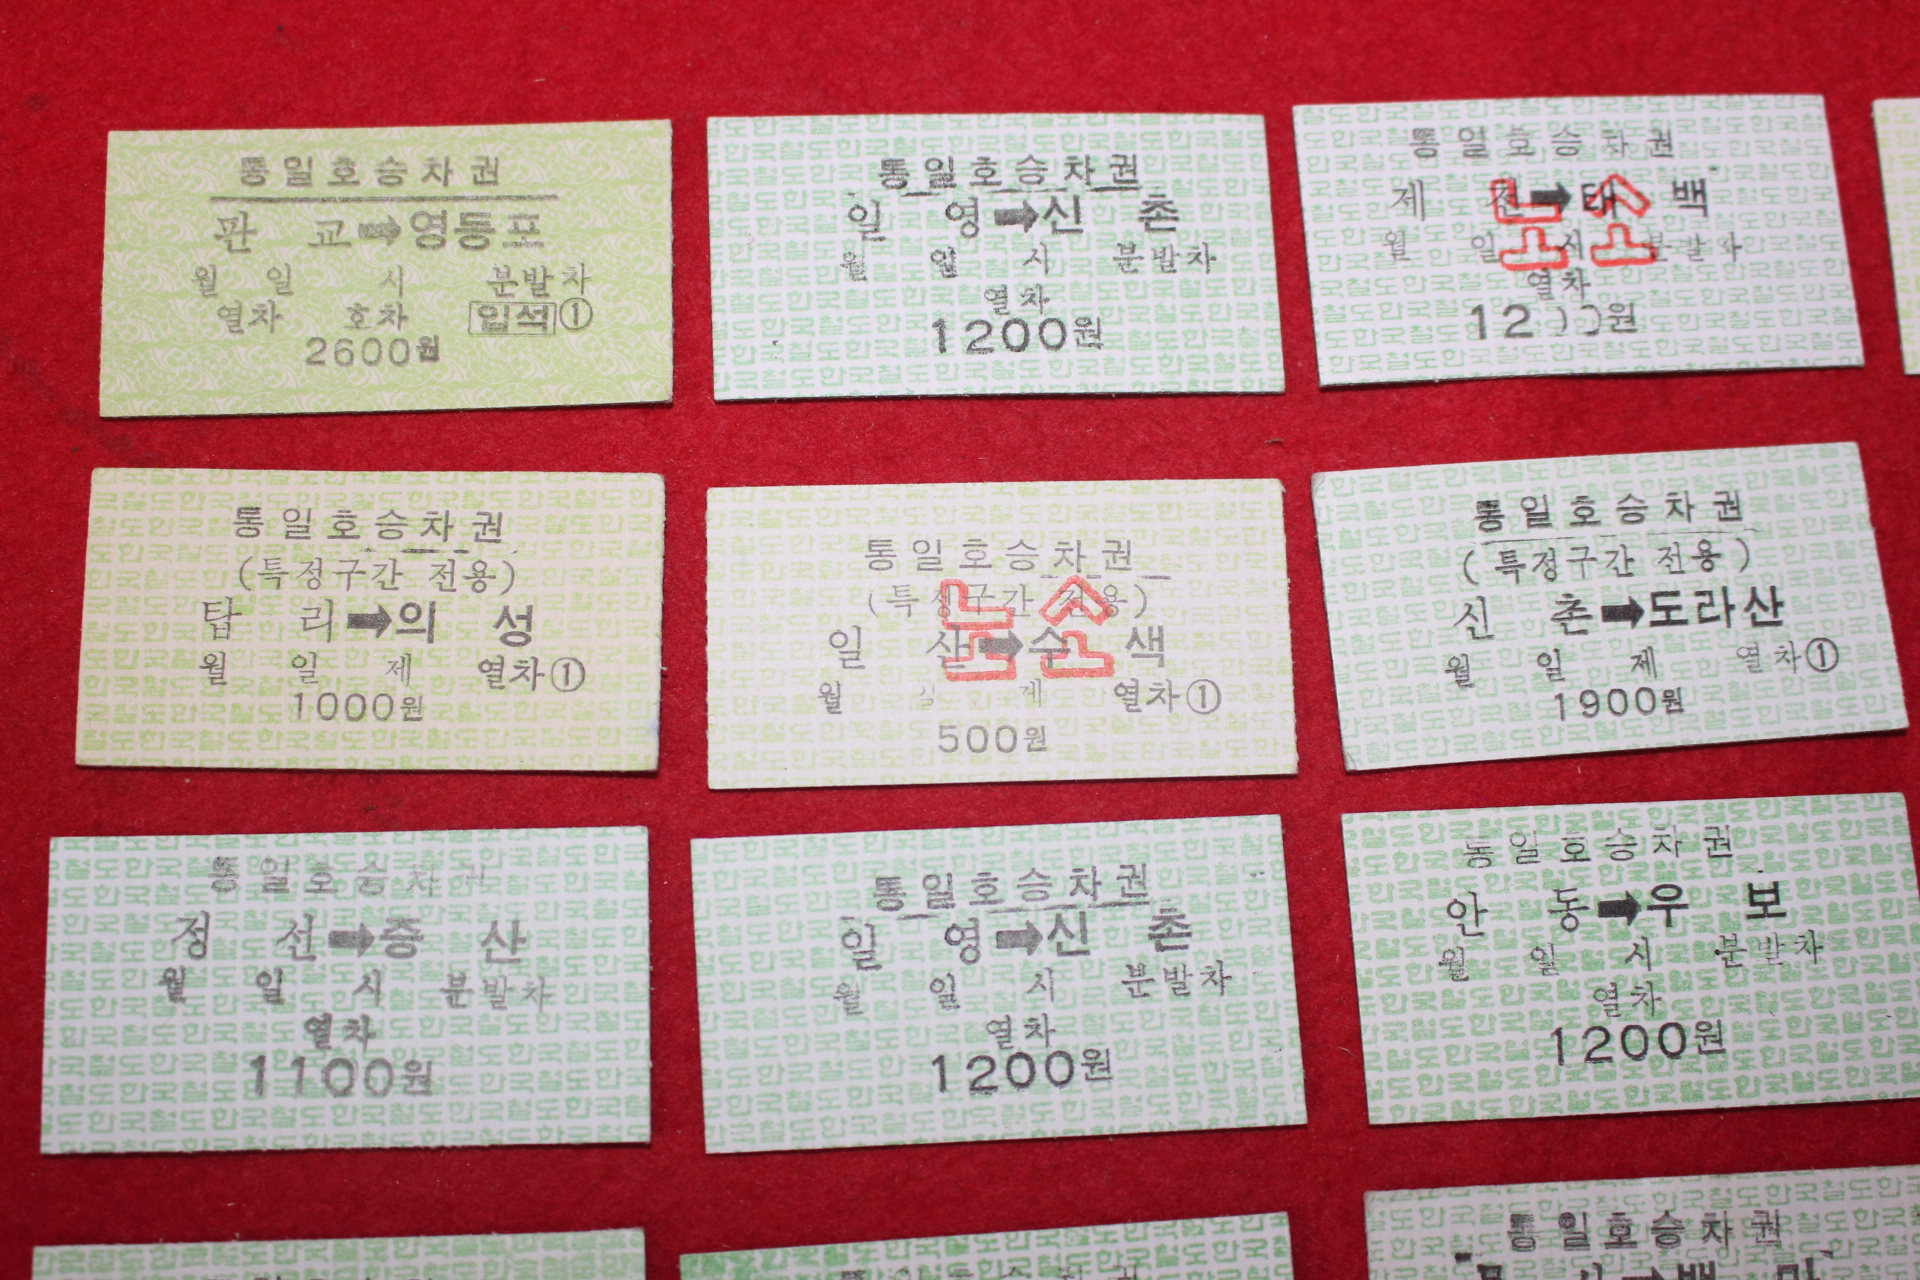 통일호승차권
판 교➡영등포
월 일 시 분발차
열차 호차 입석①
2600원
통일호승차권
일 영➡신 촌
월 일 시 분발차
열차
1200원
통일호승차권
제 천➡태 백
노소
월 일 시 분발차
열차
12 원
통일호승차권
(특정구간 전용)
탑 리➡의 성
월 일 제 열차①
1000원
통일호승차권
(특정구간 전용)
노소
일 산➡수 색
월 일 제 열차①
500원
통일호승차권
(특정구간 전용)
신 촌➡도라산
월 일 제 열차①
1900원
통일호승차권
정 선➡증 산
월 일 시 분발차
열차
1100원
통일호승차권
일 영➡신 촌
월 일 시 분발차
열차
1200원
통일호승차권
안 동➡우 보
월 일 시 분발차
열차
1200원
통일호승차권